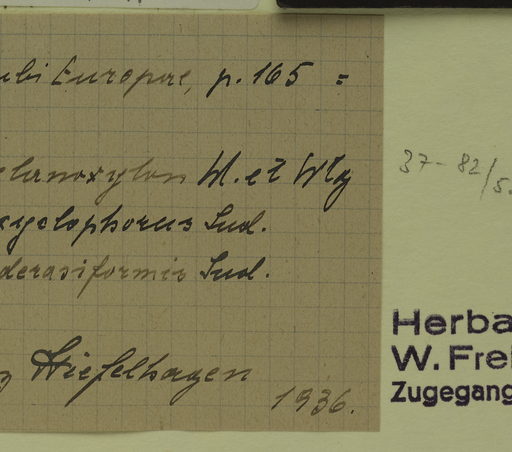 ubi Europae, p. 165 =
elanoxylon M. et Wtg
cyclophorus Sud.
derasiformis Sud.
Hiefelhagen
1936.
37-82/5
Herba
W. Frei
Zugegang